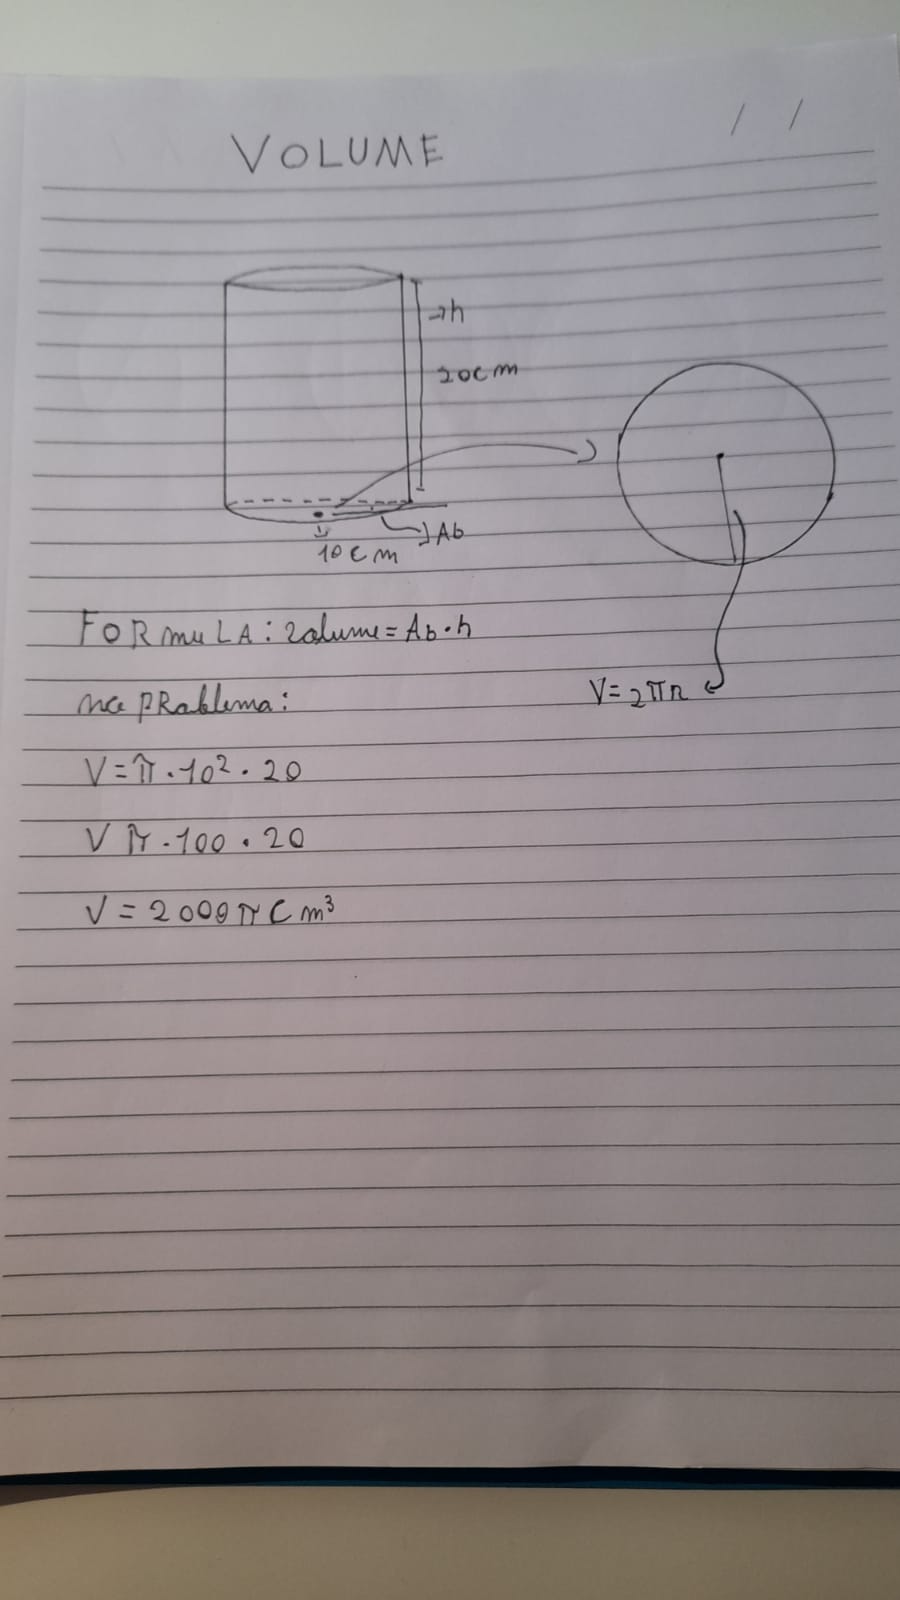 / /
VOLUME
→h
20cm
Ab
10cm
FORmuLA: Volume = Ab · h
V=2πr
no PRoblema:
V=π·10²·20
V π·100·20
V=2000πCm³